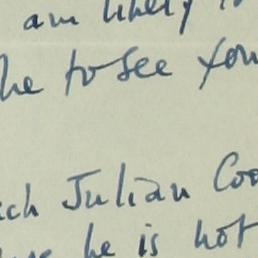 am likely to
he to see you
ich Julian Coo
he is not